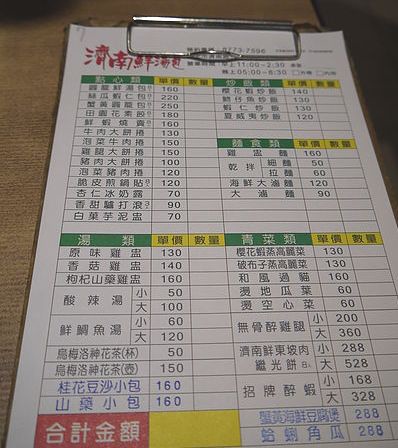 濟南鮮湯包
773-7596
早上11:00~2:30
晚上05:00~8:30
點心類 單價 數量
圓籠鮮湯包 160
絲瓜蝦仁包 220
蟹黃湯包 250
田園花素餃 180
鮮蝦燒賣 160
牛肉大餅捲 130
泡菜牛肉捲 150
雞腿大餅捲 150
豬肉大餅捲 100
泡菜豬肉捲 120
脆皮煎鍋貼 120
杏仁冰奶露 70
香甜驢打滾 90
白菓芋泥盅 70
炒飯類 單價 數量
櫻花蝦炒飯 140
魩仔魚炒飯 130
蝦仁炒飯 130
夏威夷炒飯 120
麵食類 單價 數量
雞盅麵 160
乾拌 細麵 50
拉麵 60
海鮮大滷麵 120
大滷麵 90
湯類 單價 數量
原味雞盅 130
香菇雞盅 140
枸杞山藥雞盅 160
酸辣湯 小 50
大 100
鮮鯛魚湯 小 60
大 120
烏梅洛神花茶(杯) 50
烏梅洛神花茶(壺) 150
桂花豆沙小包 160
山藥小包 160
合計金額
青菜類 單價 數量
櫻花蝦蒸高麗菜 130
破布子蒸高麗菜 130
和風過貓 160
燙地瓜葉 60
燙空心菜 60
無骨醉雞腿 小 200
大 360
濟南鮮東坡肉 小 288
繼光餅 大 528
招牌醉蝦 小 168
大 328
蟹黃海鮮豆腐煲 288
蛤蜊角瓜 288